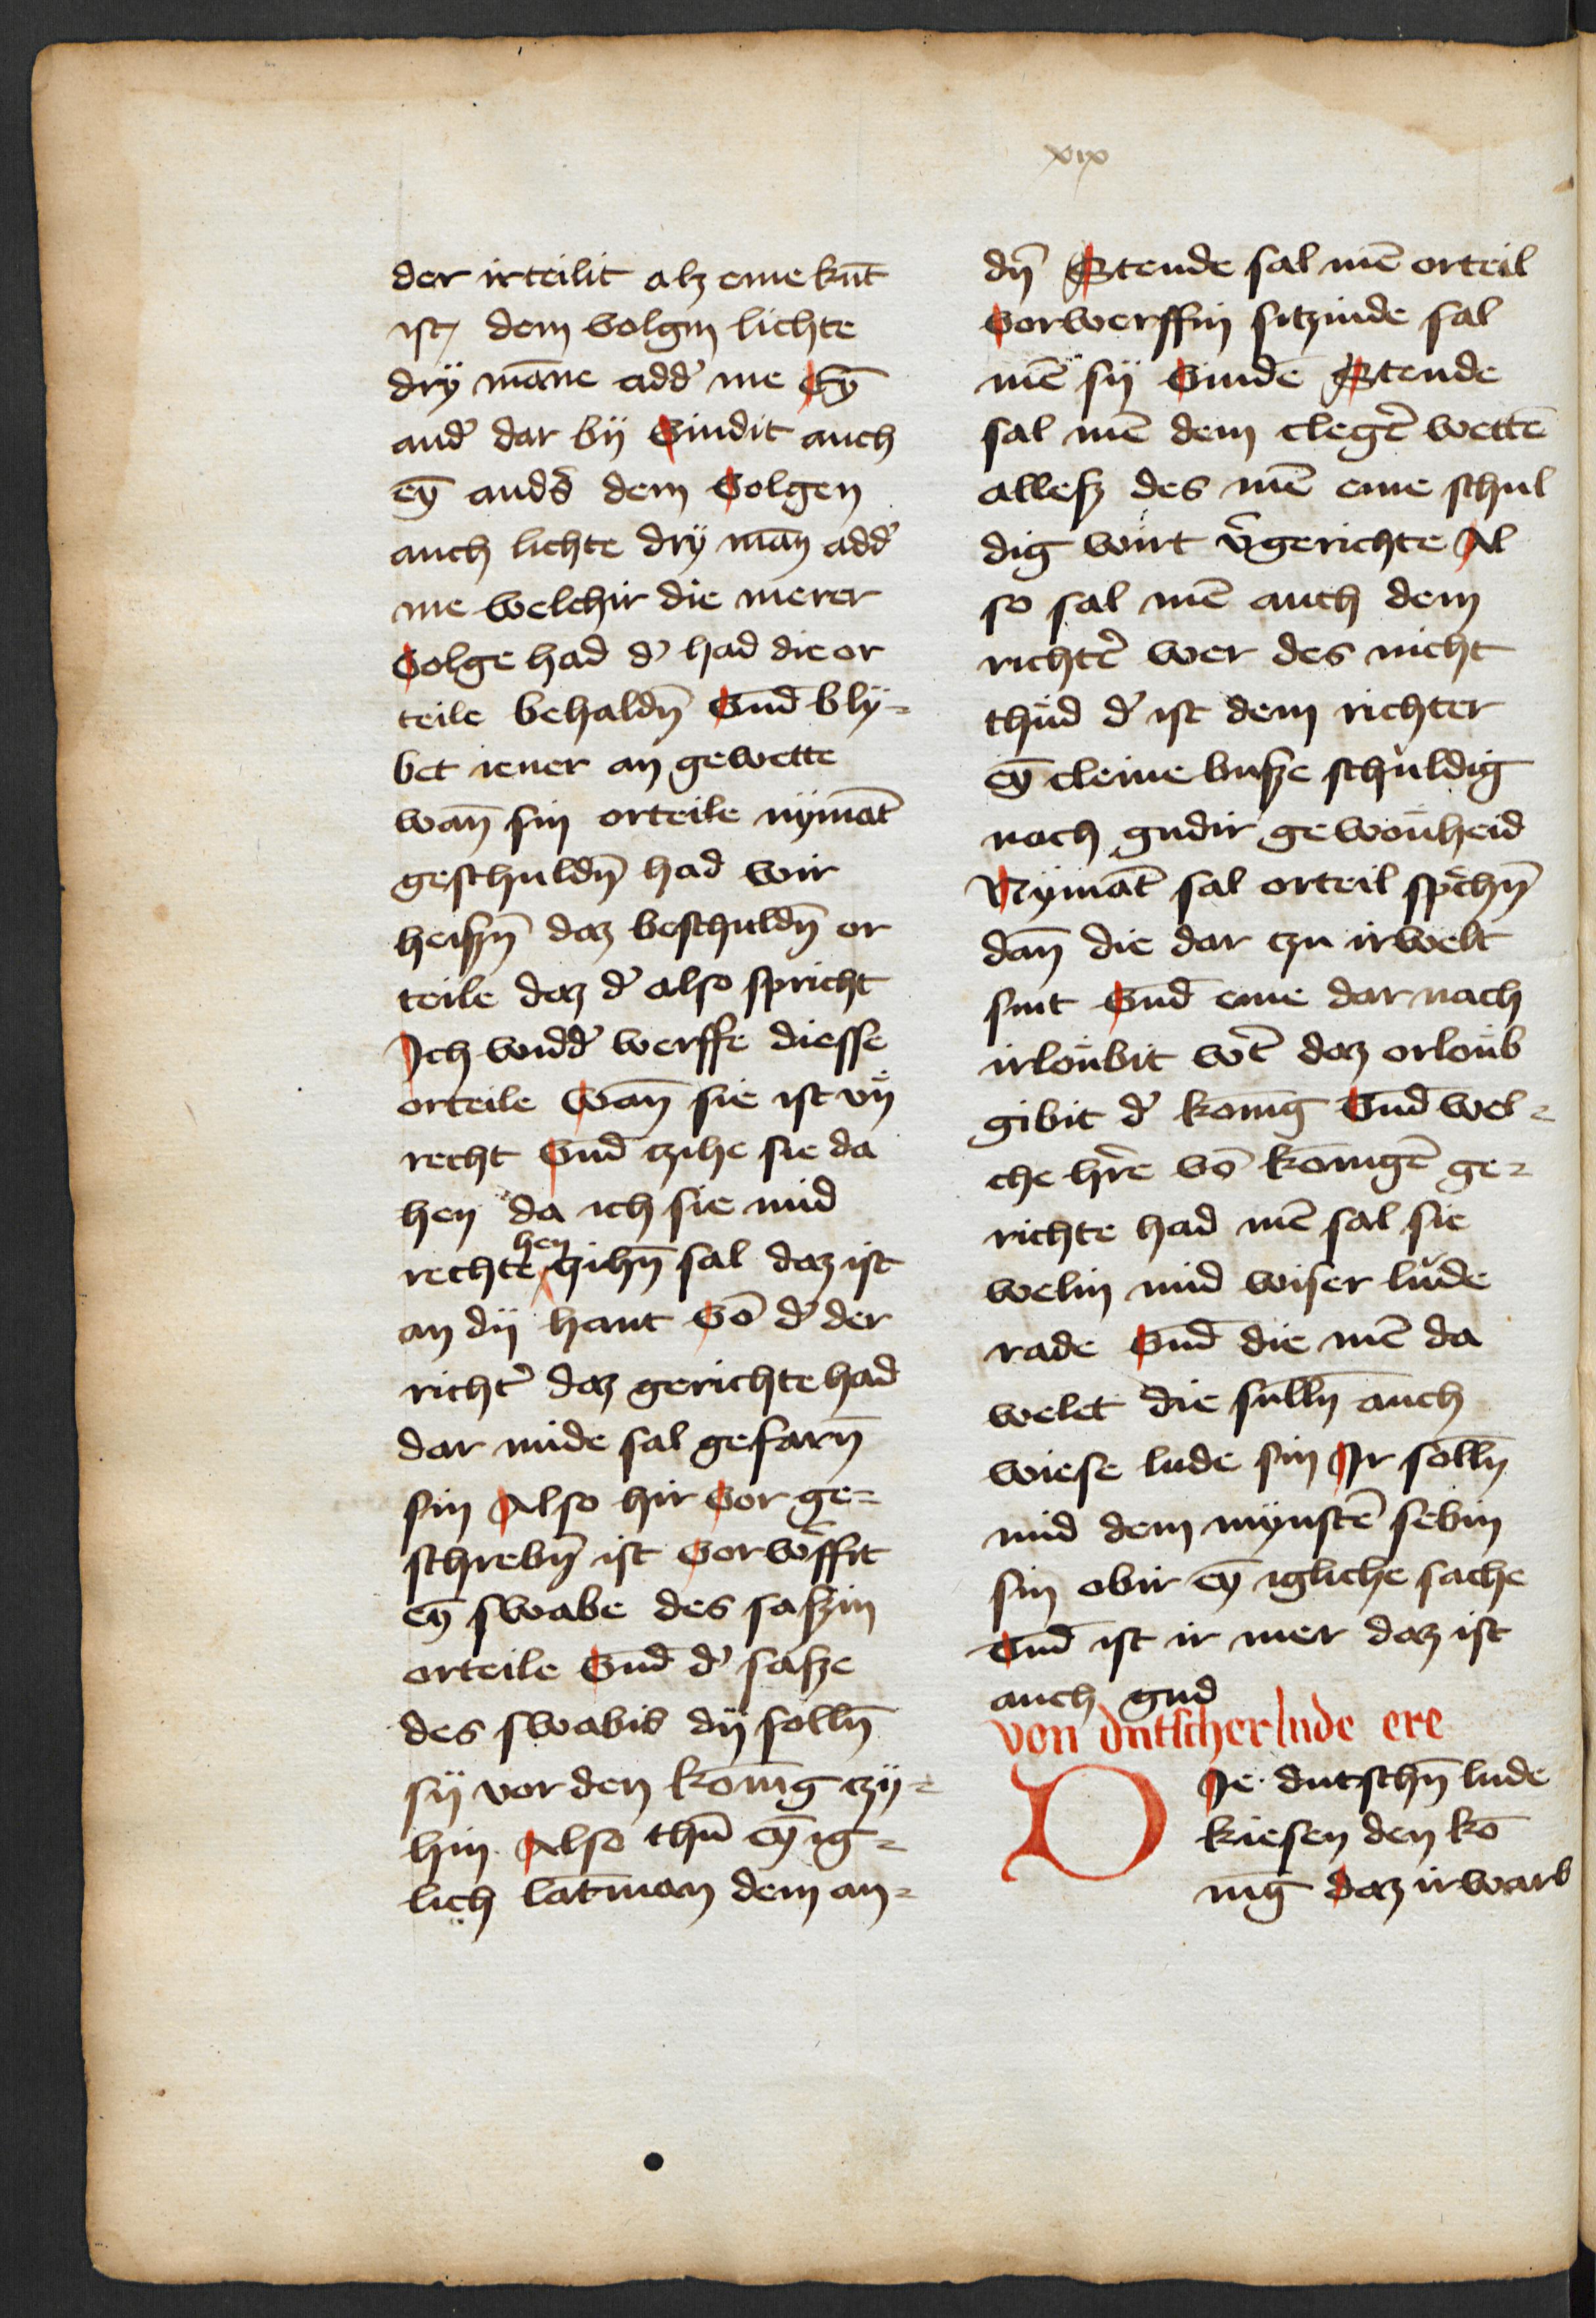 xix
der irteilit alz eme kūt
ist dem volgin lichte
dry māne add' me Ey̅
and' dar bÿ Vindit auch
ey̅ andd' dem Volgen
auch lichte dry māy add'
me welchir die merer
Volge had d' had die or
teile behaldn̄ Vnd̄ blÿ-
bet iener an gewette
wan̄ sin orteile nÿmāt
geschuldn̄ had wir
heiszn̄ daz beschuldn̄ or
teile daz d' also spricht
Ich widd' werffe diesse
orteile Wan̄ sie ist vn̄
recht Vnd̄ tzihe sie da
hen da ich sie mid
rechte hen zihn̄ sal daz ist
an dÿ hant Vō d' der
richt' daz gerichte had
dar mide sal gefarn̄
sin Also hir Vor ge-
schrebn̄ ist Vorw'ffit
ey̅ swabe des saszin
orteile Vnd̄ d' sasze
des swabis dÿ solln̄
sÿ vor den konīg tzÿ-
hin Also thū ey̅ ig-
lich latman dem an-
dn̄ Stende sal mē orteil
Vorwerffin sitzinde sal
mē sÿ Vindē Stende
sal mē dem cleg'e wettē
allesz des mē eme schul
dig wirt v'gerichte Al
so sal mē auch dem
richt'e wer des nicht
thüd d' ist dem richter
ey̅ cleine busze schuldig
nach gudir gewonheid
Nymāt sal orteil sp'chn̄
dan̄ die dar tzu irwelt
sint Vnd̄ eme dar nach
irloubit w't daz orloub
gibit d' konīg Vnd̄ wel-
che hr'e vō konīgē ge-
richte had mē sal sie
welin mid wiser lude
rade Vnd̄ die mē da
welet die sulln̄ auch
wiese lude sin Ir solln̄
mid dem mynstē sebin
sin obir ey̅ igliche sache
Vnd̄ ist ir mer daz ist
auch gud
von dutscher lude ere
DIe dutschn̄ lude
kiesen den kō
nīg daz irwarb